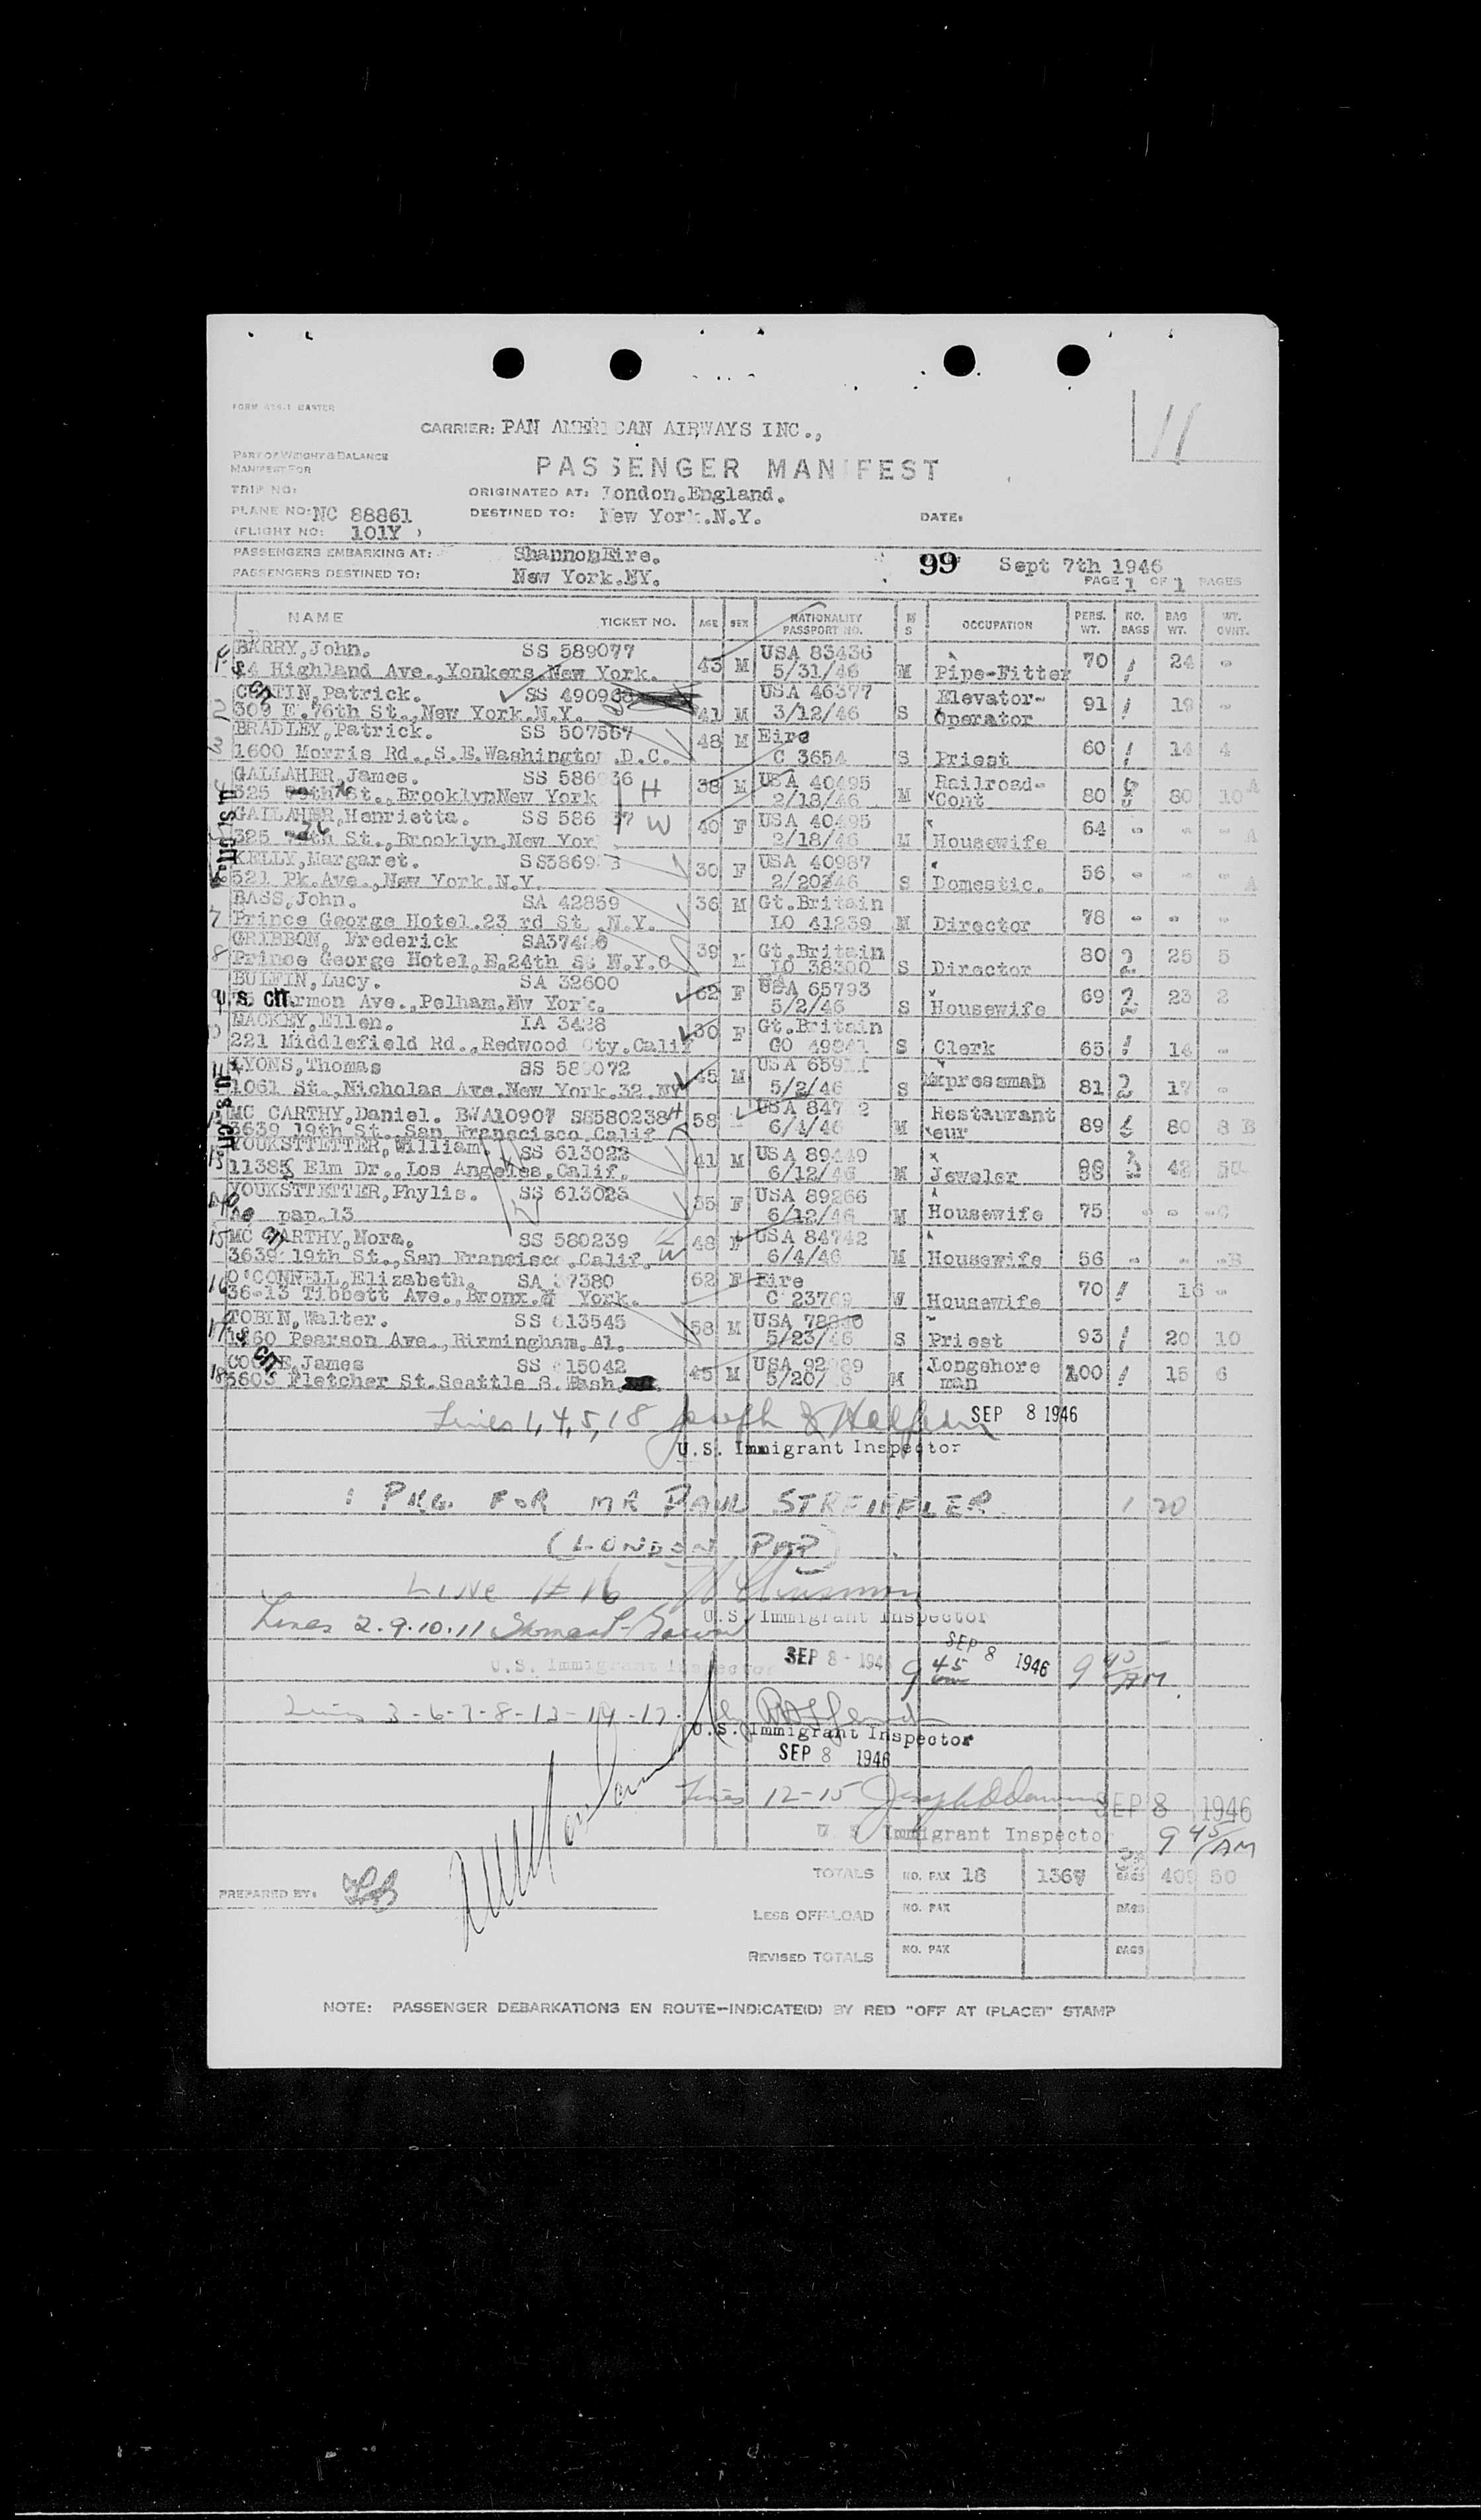 FORM MASTER
CARRIER: PAN AMERICAN AIRWAYS INC.,
11
PART OF WEIGHT & BALANCE
MANIFEST FOR
PASSENGER MANIFEST
TRIP NO:
ORIGINATED AT: London.England.
PLANE NO: NC 88861
DESTINED TO: New York.N.Y.
DATE:
(FLIGHT NO: 101Y )
PASSENGERS EMBARKING AT: Shannon Eire.
99 Sept 7th 1946
PASSENGERS DESTINED TO: New York.NY.
PAGE 1 OF 1 PAGES
NAME TICKET NO. AGE SEX NATIONALITY PASSPORT NO. M S OCCUPATION PERS. WT. NO. BAGS BAG WT. WT. OVNT.
BARRY,John. SS 589077 43 M USA 83436 M Pipe-Fitter 70 1 24 -
Highland Ave.,Yonkers New York. 5/31/46
2 Patrick. 41 M USA 46377 S Elevator- 91 1 19 -
309 E.76th St.,New York.N.Y. 3/12/46 Operator
3 BRADLEY,Patrick. SS 507567 48 M Eire S Priest 60 1 14 4
1600 Morris Rd.,S.E.Washington .D.C. C 3654
GALLAHER,James. SS 586 36 H 38 M USA 40495 M Railroad- 80 80 10 A
325 St.,Brooklyn New York 2/18/46 Cont
GALLAHER,Henrietta. SS 586 37 W 40 F USA 40495 M Housewife 64 - - A
325 St.,Brooklyn,New Yor 2/18/46
KELLY,Margaret. 30 F USA 40987 S Domestic. 56 - - - A
521 Pk.Ave.,New York.N.Y. 2/20/46
7 BASS,John. SA 42859 36 M Gt.Britain M Director 78 - - -
Prince George Hotel.23 rd St .N.Y. LO 41239
8 GRIBBON, Frederick 39 M Gt.Britain S Director 80 2 25 5
Prince George Hotel,E.24th St N.Y.C LO 38300
9 U.S. CIT BULFIN,Lucy. SA 32600 62 F USA 65793 S Housewife 69 2 23 2
Ave.,Pelham.Nw York. 5/2/46
MACKEY,Ellen. IA 3428 30 F Gt.Britain S Clerk 65 1 14 -
221 Middlefield Rd.,Redwood Cty.Calif
LYONS,Thomas 45 M S Expressman 81 2 17 -
1061 St.,Nicholas Ave.New York.32.NY 5/2/46
MC CARTHY,Daniel. BWA10907 SS580238 H 58 M Restaurant 89 80 8 B
3639 19th St.,San Franscisco.Calif 6/4/46 eur
YOUKSTTETTER,William. SS 613022 41 M USA 89449 M Jeweler 42
Elm Dr.,Los Angeles.Calif. 6/12/46
YOUKSTTETTER,Phylis. SS 613023 35 F USA 89266 M Housewife 75 - - -C
As pap.13 6/12/46
15 MC CARTHY,Nora. SS 580239 W 48 F USA 84742 M Housewife 56 - - -B
3639 19th St.,San Francisco.Calif. 6/4/46
16 O'CONNELL,Elizabeth. SA 37380 62 F Eire W Housewife 70 1 16 -
36-13 Tibbett Ave.,Bronx. York. C 23769
17 TOBIN,Walter. SS 613545 58 M USA S Priest 93 1 20 10
Pearson Ave.,Birmingham.Al. 5/23/46
18 James SS 15042 45 M USA M Longshore 100 1 15 6
5603 Fletcher St.Seattle 8. Wash. 5/20/ man
Lines 1,4,5,18 Joseph SEP 8 1946
U.S. Immigrant Inspector
: PKG. FOR MR PAUL STREIFFLER 1 20
(LONDON PAP)
LINE # 16
U.S. Immigrant Inspector
Lines 2.9.10.11
SEP 8 - 194 SEP 8 1946
U.S. Immigrant Inspector
9 45 AM
9 45 AM.
Lines 3-6-7-8-13-14-17.
U.S. Immigrant Inspector
SEP 8 1946
Lines 12-15 SEP 8 1946
U.S. Immigrant Inspector
9 45 AM
TOTALS NO. PAX 18 1367 BAGS 409 50
PREPARED BY:
LESS OFF-LOAD NO. PAX BAGS
REVISED TOTALS NO. PAX BAGS
NOTE: PASSENGER DEBARKATIONS EN ROUTE-INDICATE(D) BY RED "OFF AT (PLACE)" STAMP